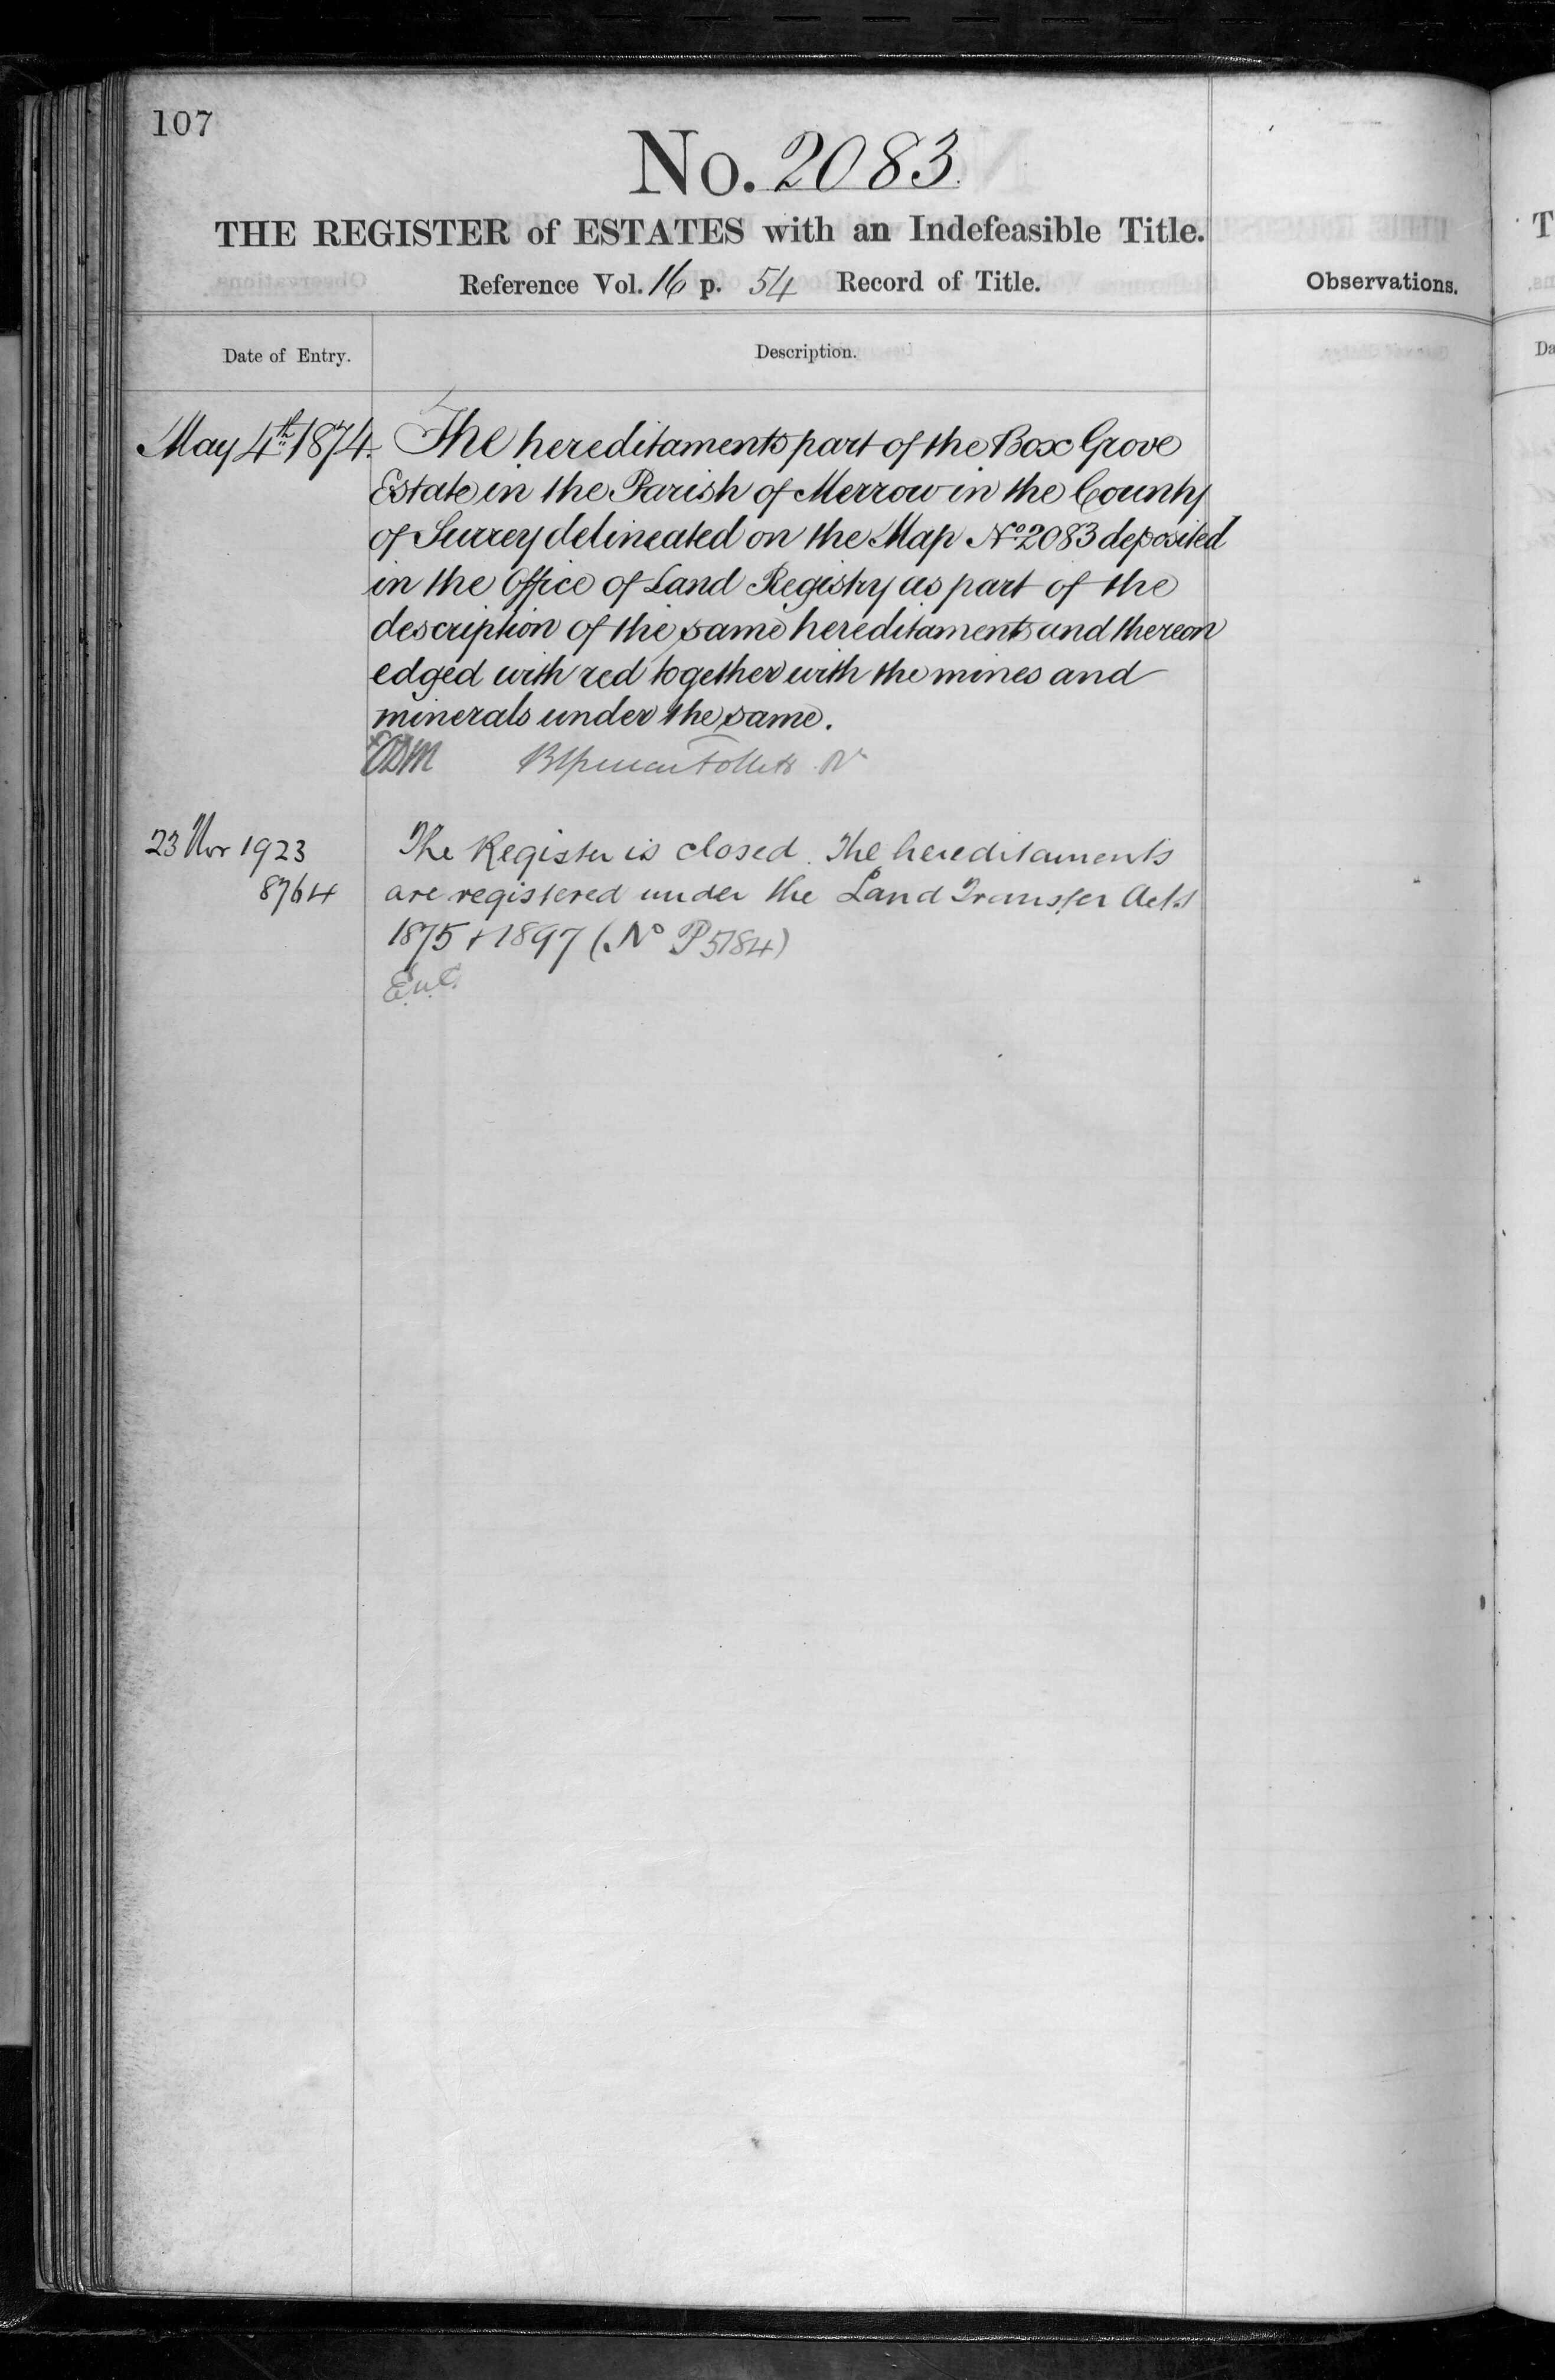 107
No. 2083.
THE REGISTER of ESTATES with an Indefeasible Title.
Reference Vol. 16 p. 54 Record of Title.
Observations.
Date of Entry.
Description.
May 4th 1874. The hereditaments part of the Box Grove
Estate in the Parish of Merrow in the County
of Surrey delineated on the Map No 2083 deposited
in the Office of Land Registry as part of the
description of the same hereditaments and thereon
edged with red together with the mines and
minerals under the same.
Follett
23 Nov 1923 The Register is closed. The hereditaments
8764 are registered under the Land Transfer Acts
1875 & 1897 (No P5184)